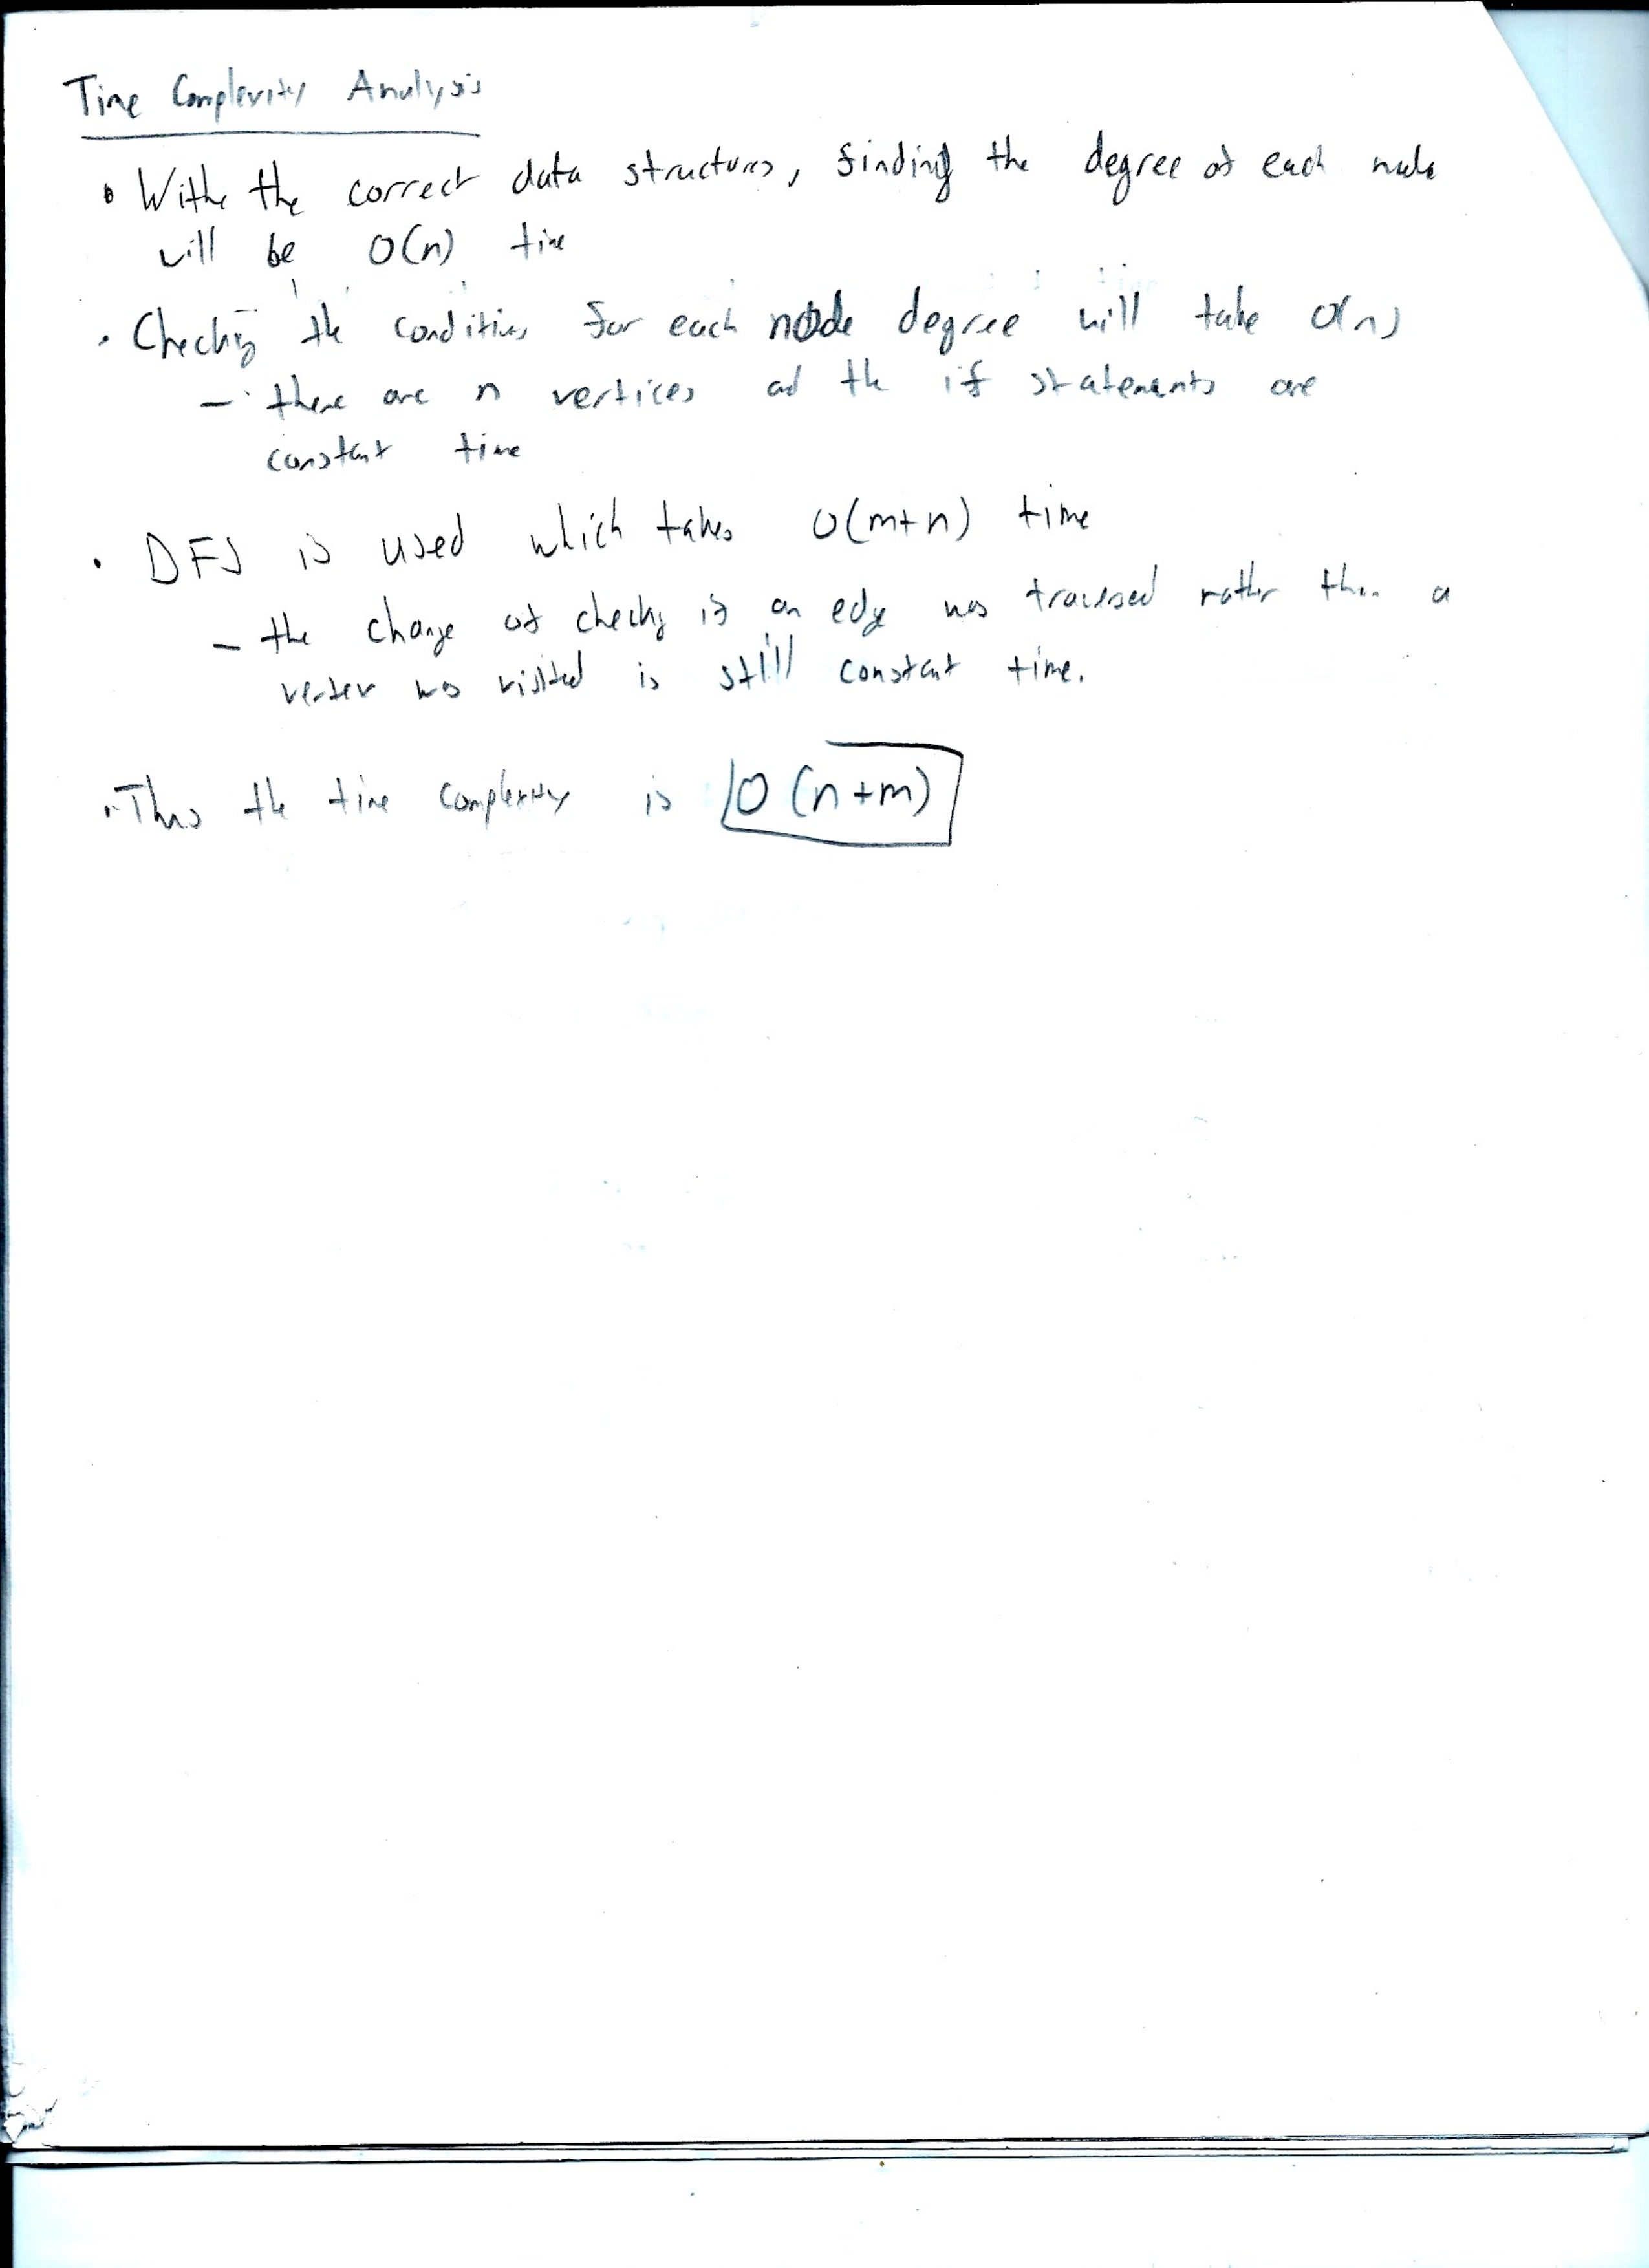 Time Complexity Analysis
• Withe the correct data structures, finding the degree of each node
will be O(n) time
• Checking the conditions for each node degree will take O(n)
— there are n vertices and the if statements are
constant time
• DFS is used which takes O(m+n) time
— the change of checking if an edge was traversed rather than a
vertex was visited is still constant time.
• Thus the time complexity is O(n+m)